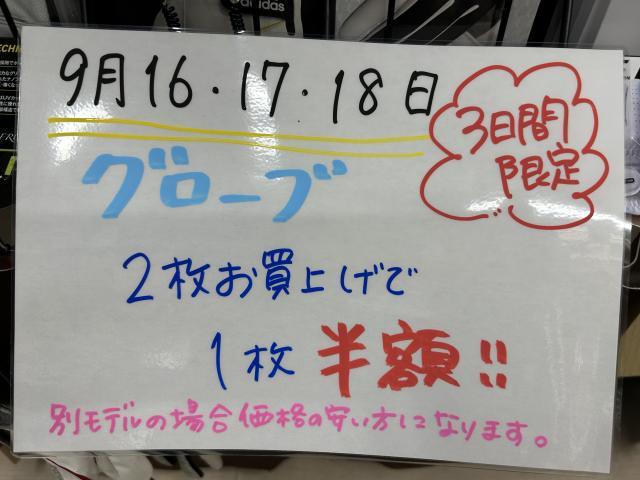 adidas
9月16・17・18日
3日間
限定
グローブ
2枚お買上げで
1枚半額!!
別モデルの場合価格の安い方になります。